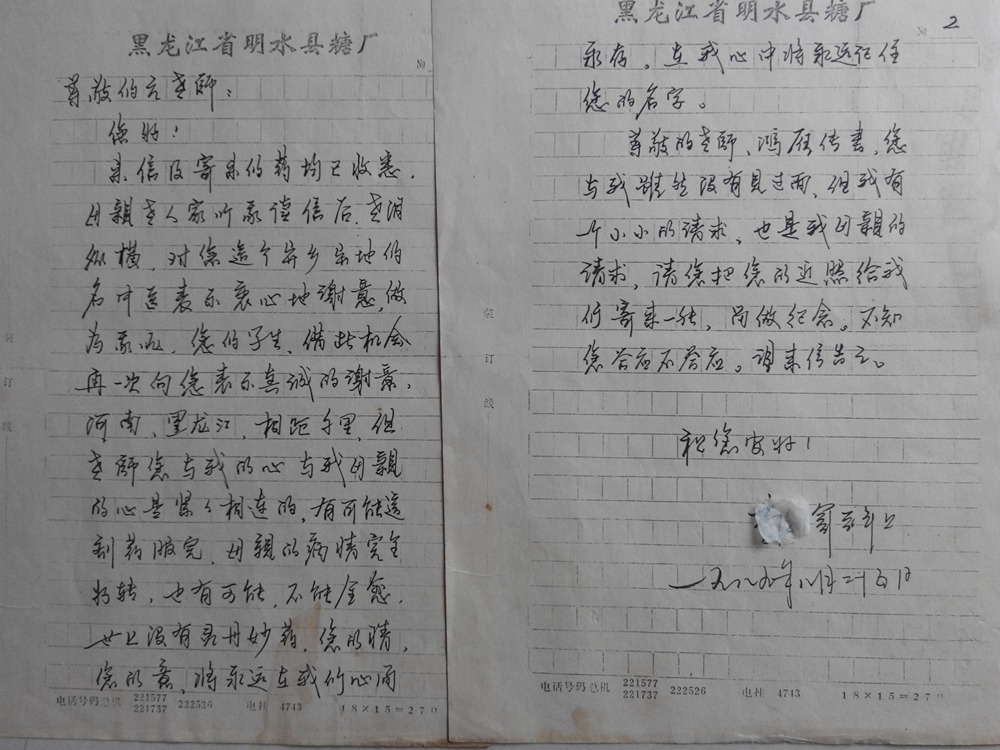 黑龙江省明水县糖厂
№
尊敬的 老师：
您好！
来信及寄来的药均已收悉，
母亲老人家听来信后，老泪
纵横，对您这个异乡 地的
名中医表示衷心地谢意，做
为 您的学生，借此机会
再一次向您表示真诚的谢意，
河南、黑龙江，相距千里，但
老师您与我的心与我母亲
的心是紧紧相连的，有可能这
剂药服完，母亲的病情完全
好转，也有可能，不能全愈，
世上没有灵丹妙药，您的情，
您的意，将永远在我们心
电话号码总机 221577 221737 222526 电挂 4743 18×15=270
装
订
线
黑龙江省明水县糖厂
№ 2
永存。在我心中将永远记住
您的名字。
尊敬的老师，鸿雁传书，您
与我虽然没有见过面，但我有
一个小小的请求，也是我母亲的
请求，请您把您的近照给我
们寄来一张，留做纪念。不知
您答应不答应。请来信告之。
祝您安好！
一九八九年八月二十五日
装
订
线
电话号码总机 221577 221737 222526 电挂 4743 18×15=270